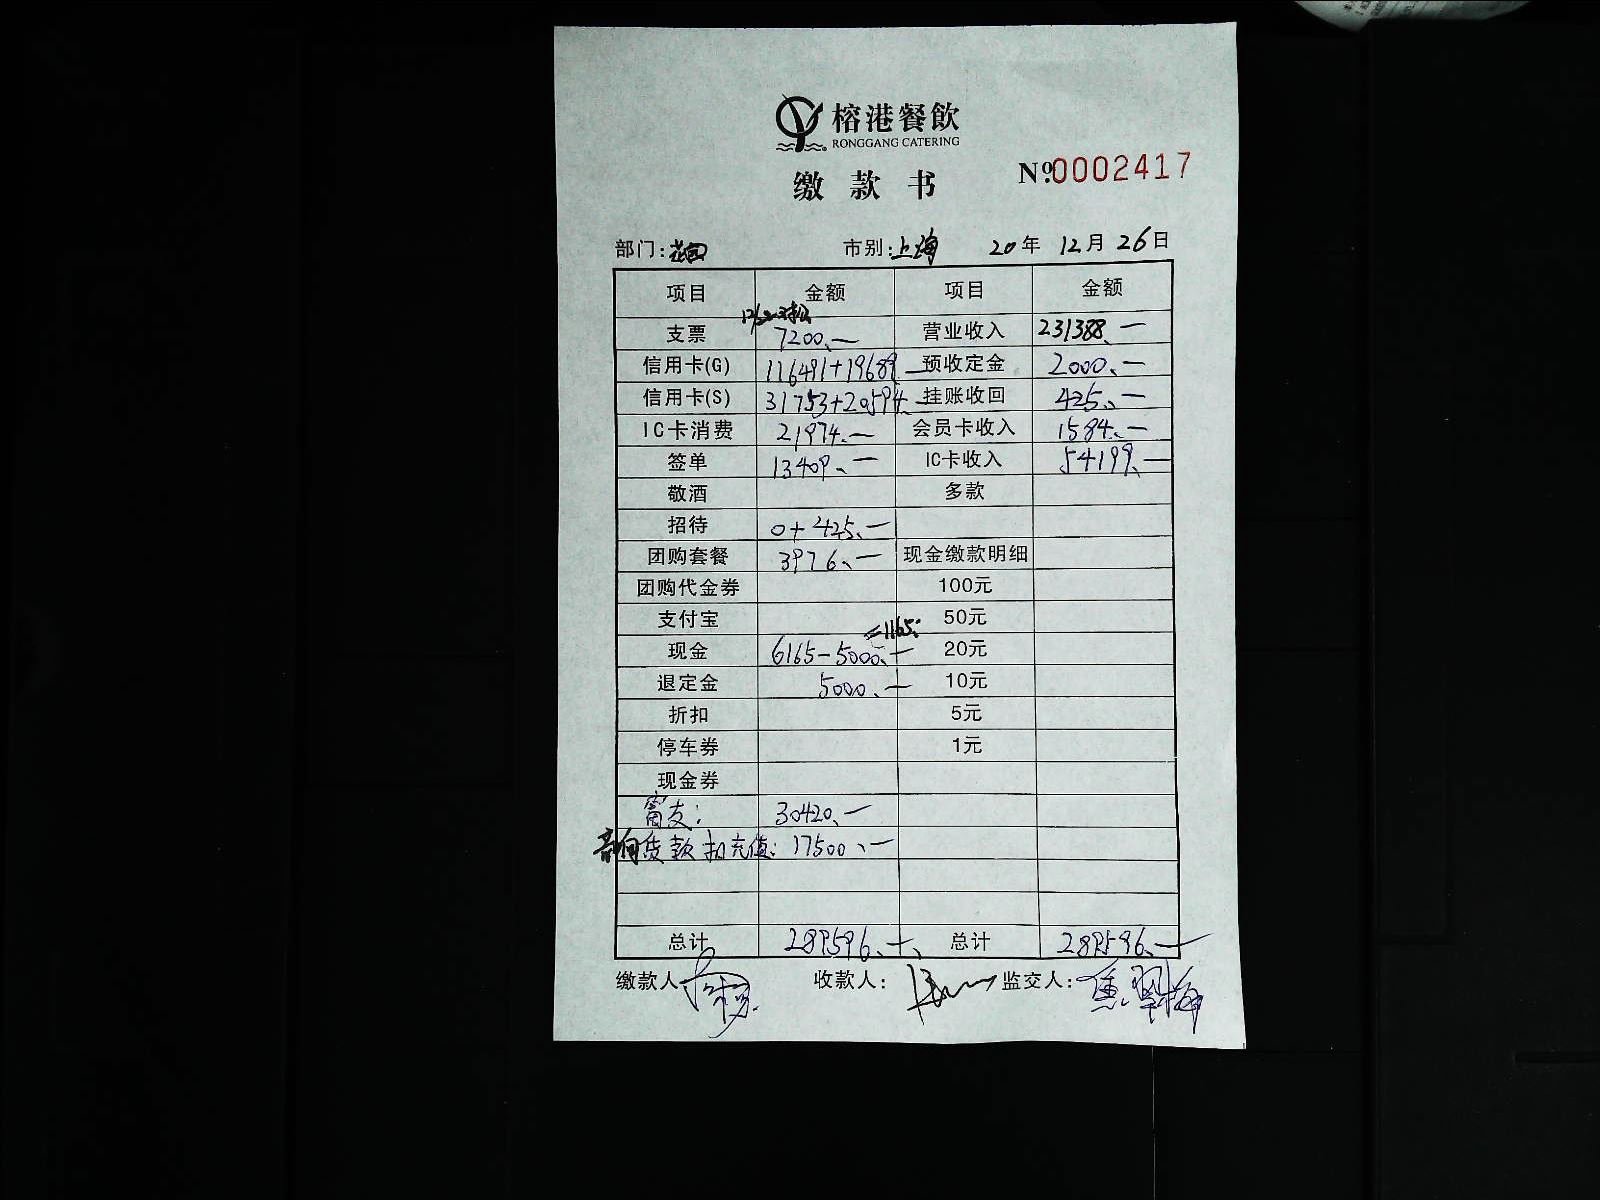 榕港餐飲
RONGGANG CATERING
缴款书
№0002417
部门:花园 市别:上海 20年12月26日
项目 金额 项目 金额
支票 7200、一 营业收入 231388、一
信用卡(G) 116491+19689、一 预收定金 2000、一
信用卡(S) 31753+20594、一 挂账收回 425、一
IC卡消费 21974、一 会员卡收入 1584、一
签单 13409、一 IC卡收入 54199、一
敬酒 多款
招待 0+425、一
团购套餐 3976、一 现金缴款明细
团购代金券 100元
支付宝 50元
=1165.
现金 6165-5000、一 20元
退定金 5000、一 10元
折扣 5元
停车券 1元
现金券
富友: 30420、一
货款扣充值: 17500、一
总计 289596、一 总计 289596、一
缴款人: 收款人: 监交人: